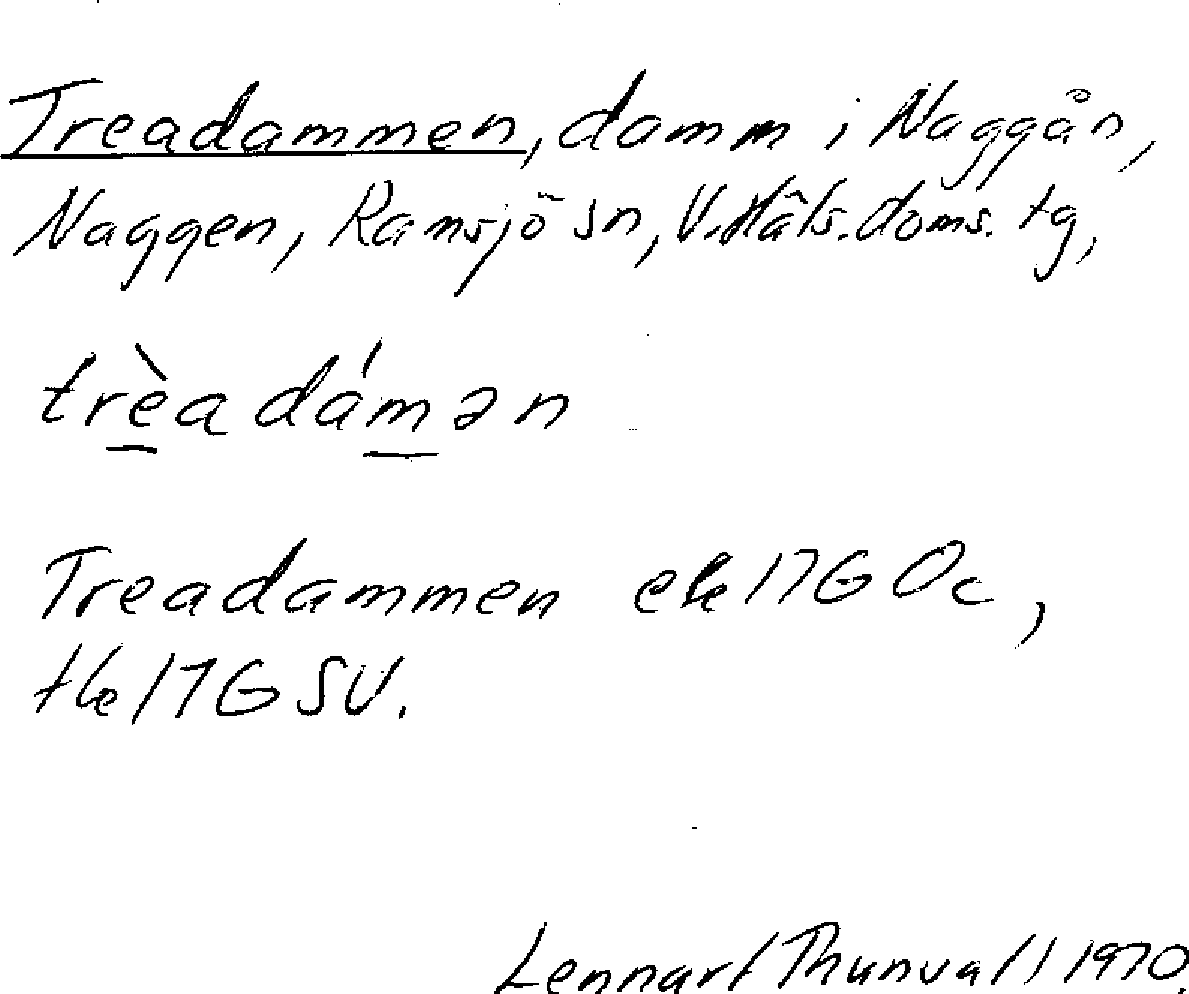 Treadammen, damm i Naggån,
Naggen, Ramsjö sn, V.Häls.doms. tg,
trèadámən
Treadammen ek 17G Oc,
tk 17G SV.
Lennart Thunvall 1970.